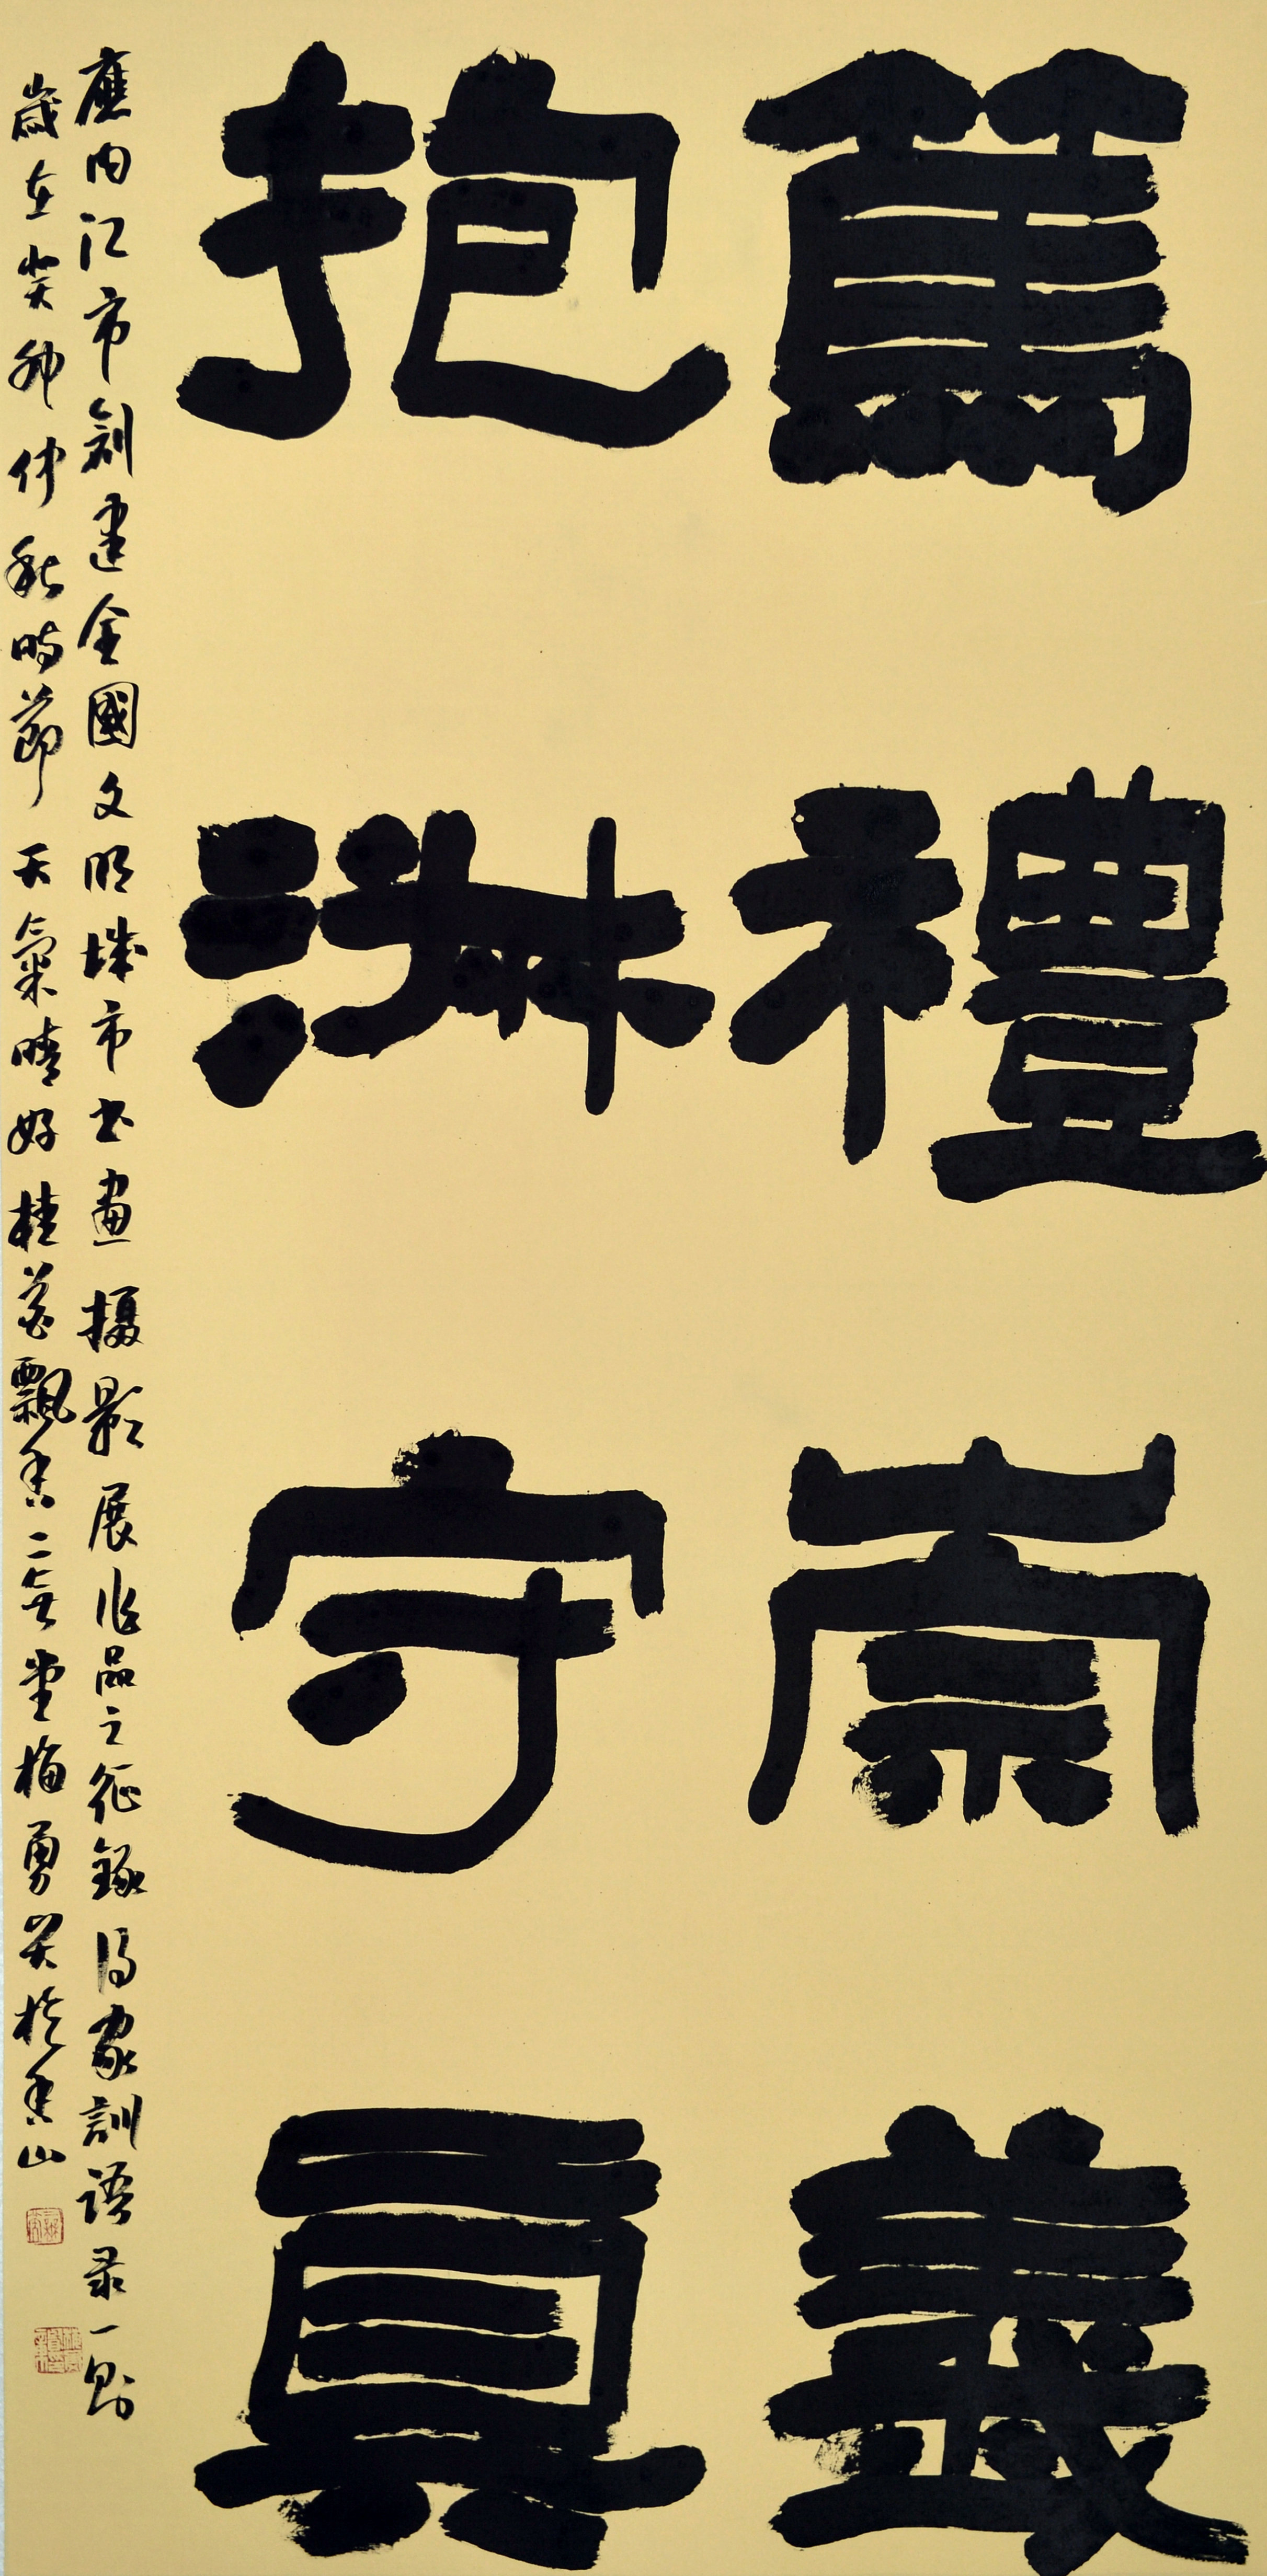 篤禮崇義
抱淑守真
應内江市創建全國文明城市书畫摄影展作品之征錄得家訓語录一則
歲在癸卯仲秋時節天氣晴好桂花飄香二喜堂梅勇於香山